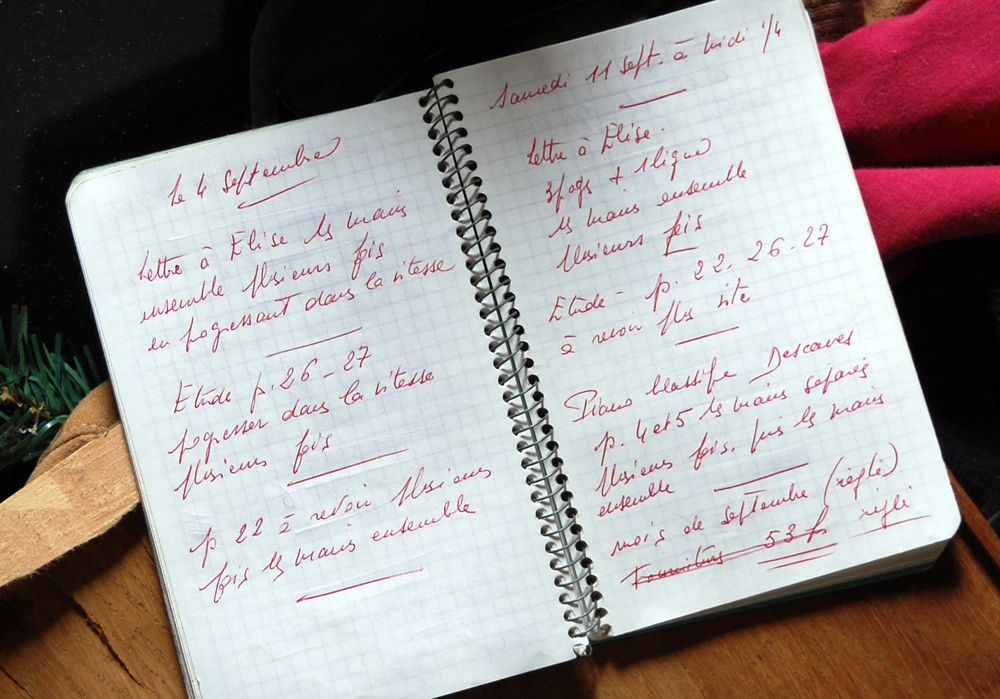 Le 4 Septembre
Lettre à Elise les mains
ensemble plusieurs fois
en progressant dans la vitesse
Etude p. 26 - 27
progresser dans la vitesse
plusieurs fois
p. 22 à revoir plusieurs
fois les mains ensemble
Samedi 11 Sept. à Midi 1/4
Lettre à Elise -
3 pages + 1 ligne
les mains ensemble
plusieurs fois
Etude - p. 22. 26-27
à revoir plus vite
Piano Classique Descaves
p. 4 et 5 les mains séparés
plusieurs fois. puis les mains
ensemble
mois de septembre (réglé)
Fournitures 53 f réglé